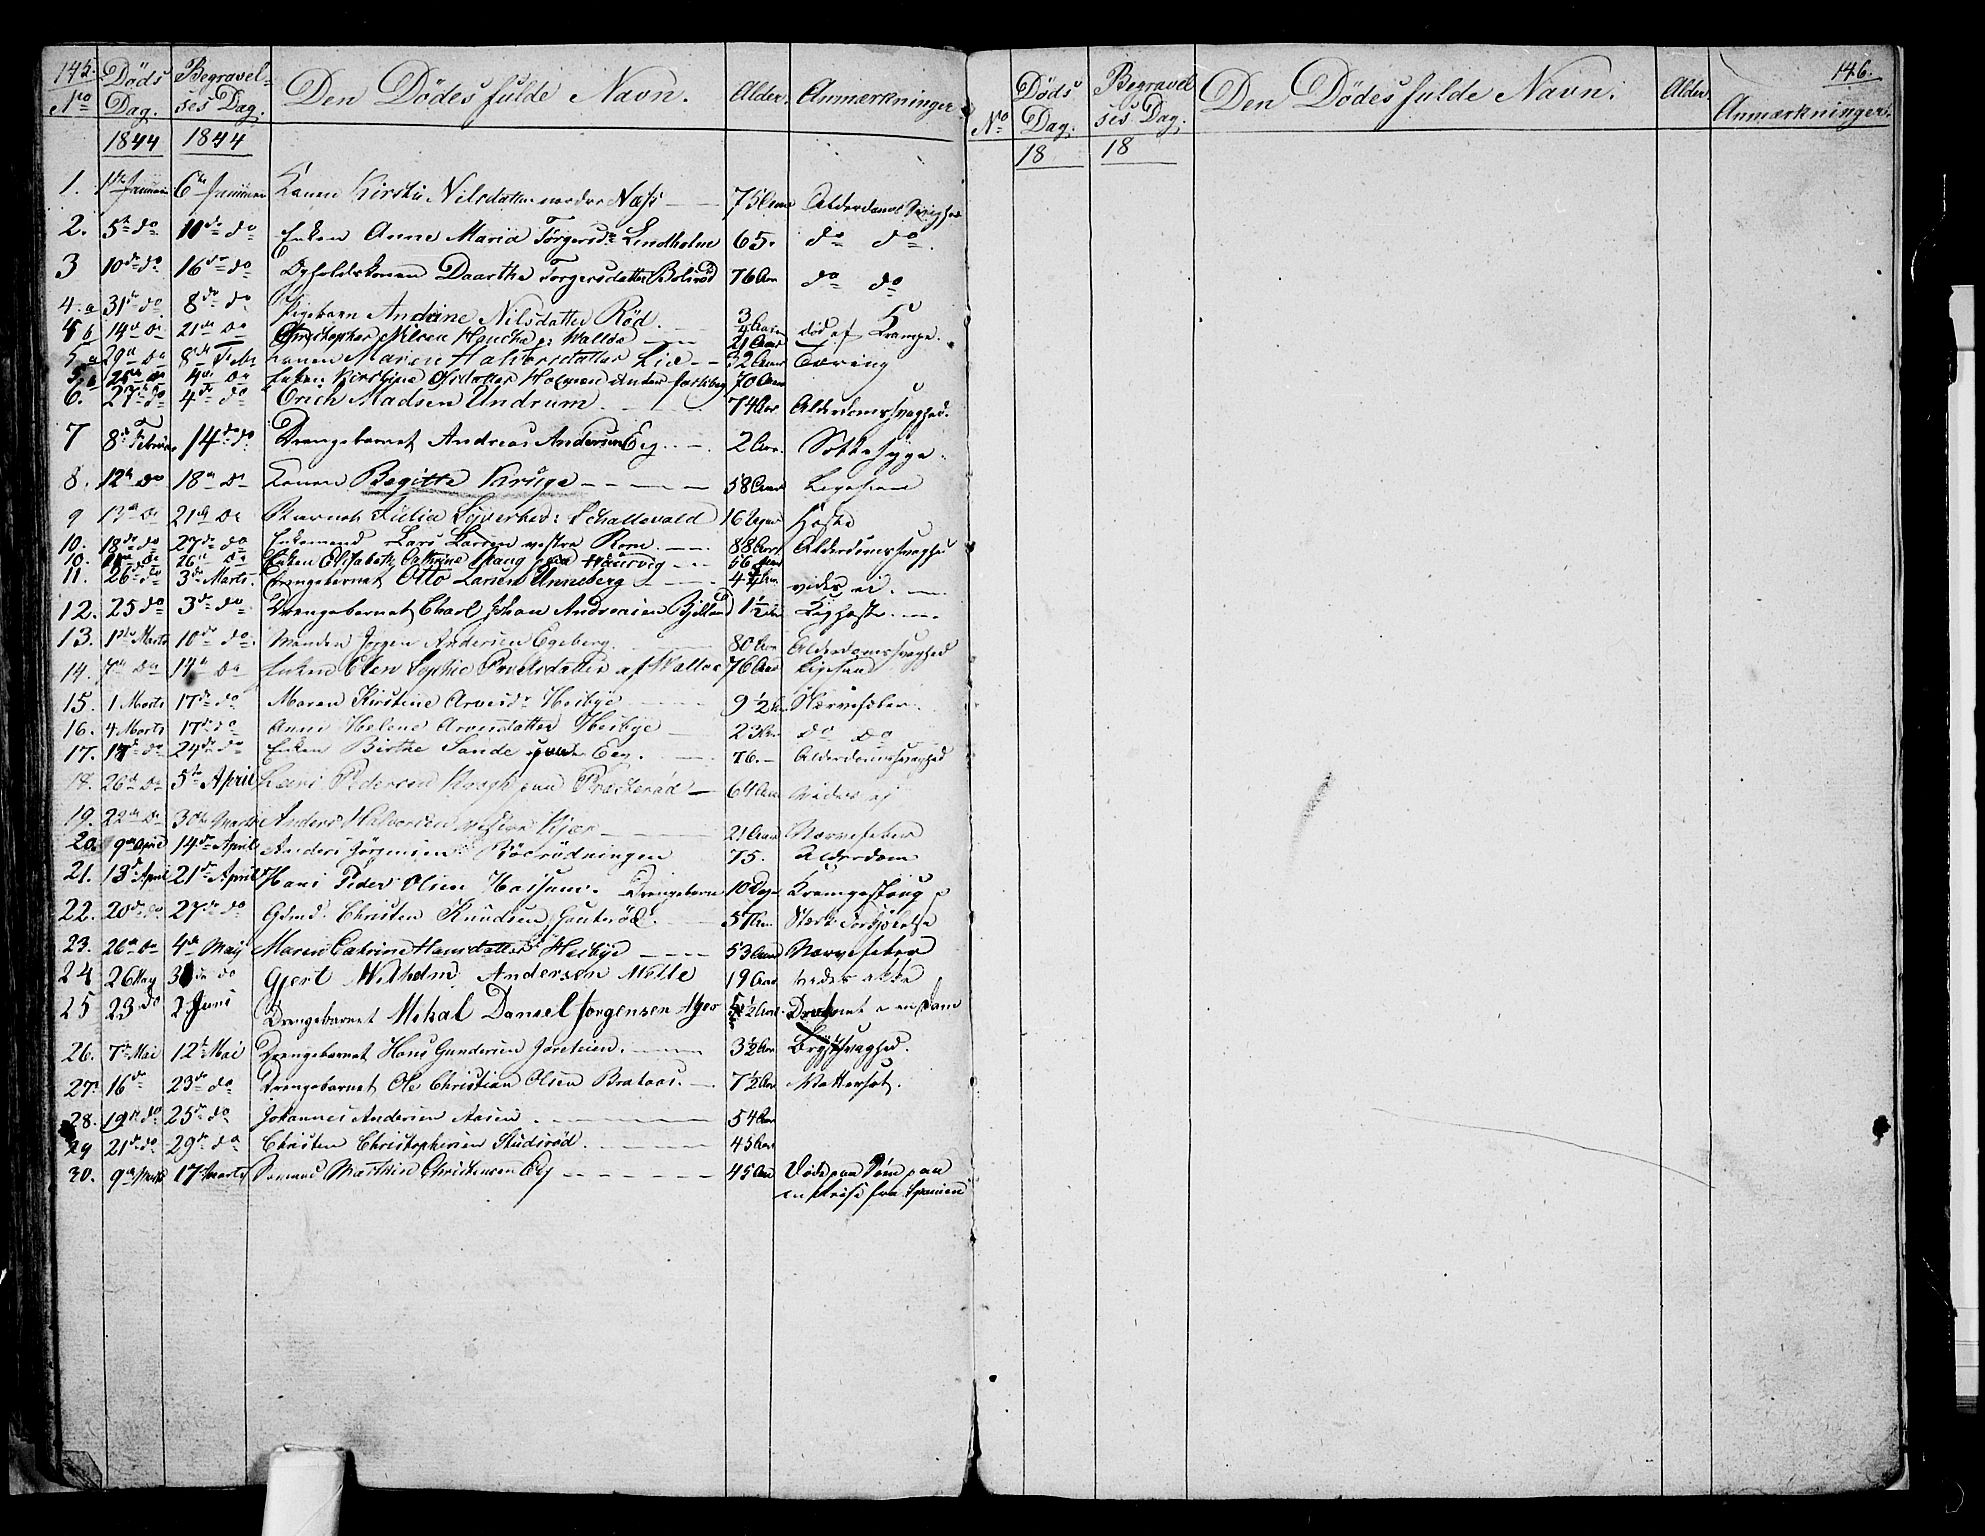 145.
No Døds Dag. Begravelses Dag. Den Dødes fulde Navn. Alder. Anmærkninger
1844 1844
1. 1ste Januar 6te Januar Konen Kirstie Nilsdatter nordre Næss 75 Aar Alderdoms Svaghed
2. 5te do 11te do Enken Anne Maria Torgersdr Lindholm 65. do do
3 10de do 16de do Opholdskonen Daarthe Torgersdatter Bolsrød 76 Aar do do
4 a 31te do 8de do Pigebarn Andrine Nilsdatter Rød. 3 Aar død af Krampe.
4 b 14de do 21de do Christopher Nilsen 21 Aar
5 a 29de do 8de Febr Konen Maren Halvorsdatter Lie 32 Aar Tæring
5 b 25de do 4de do Enken Kirstine Olsdatter Holmen under 70 Aar
6. 27de do 4de do Erich Madsen Undrum 74 Aar Alderdomssvaghed.
7 8de Februar 14de do Drengebarnet Andreas Andersen Eeg 2 Aar. Sottesyge.
8. 12te do 18de do Konen Begitte Kruge 58 Aar Ligesaa
9 13de do 21de do Barnet Julia Syvertsd: Schallevald 16 Uger Hoste
10. 18de do 27de do Enkemand Lars Larsen vestre Rom 88 Aar Alderdomssvaghed
10. 21de do 26de do Enken Elisabeth Cathrine Stang paa 56 Aar
11. 26de do 3de Marts Drengebarnet Otto Larsen Unneberg 4 Aar vides ei.
12. 25 do 3de do Drengebarnet Charl Johan Andreasen Bjelland 1½ Aar Kighoste
13. 1ste Marts 10de do Manden Jørgen Andersen Egeberg 80 Aar Alderdomssvaghed
14. 7de do 14de do Enken Elen Sophie Povelsdatter af Walløe 76 Aar Ligesaa
15. 1 Marts 17de do Maren Kirstine Arvesdr Heibye 9½ Nærvefeber
16. 4 Marts 17de do Anne Helene Arvesdatter Heibye 23 Aar do do
17. 17de do 24de do Enken Birthe Sande paa Eeg. 76. Alderdomssvaghed
18. 26de do 5te April Lars Pedersen paa Præsterød 64 Aar vides ej
19. 22de do 30de Marts Anders Halvorsen vestre Kjær 21 Aar Nærvefeber
20. 9de April 14de April Anders Jørgensen Rödningen 75. Alderdom
21. 13de April 21de April Hans Peder Olsen Hassum. Drengebarn 10 Dage Krampeslaug
22. 20de do 27de do Gdmd. Christen Knudsen Gauterød. 57 Aar Stærk Forkjølelse
23. 26de do 4de Maij Maren Catrine Hansdatter Heibye 53 Aar Nærvefeber
24 26 May 31 do Gjert Wilhelm Andersen Melle 19 Aar vedes ekke
25 23 do 2 Juni Drengebarnet Mekal Daniel Jørgensen Ager 5½ Aar. Druknet i en Dam
26. 7de Mai 12te Mai Drengebarnet Hans Gundersen Jareteien. 3½ Aar Brystsvaghed.
27. 16de 23de do Drengebarnet Ole Christian Olsen Brataas. 7½ Aar Vattersot.
28. 19de do 25de do Johannes Andersen Aasen 54 Aar
29 21de do 29de do Christen Christophersen Studsrød. 45 Aar
30. 9de Marts 17de Marts Sømand Mathias Christensen Eeg 45 Aar Døde paa Søen paa
en Reise fra Spanien
146.
No Døds Dag. Begravelses Dag. Den Dødes fulde Navn. Alder. Anmærkninger.
18 18